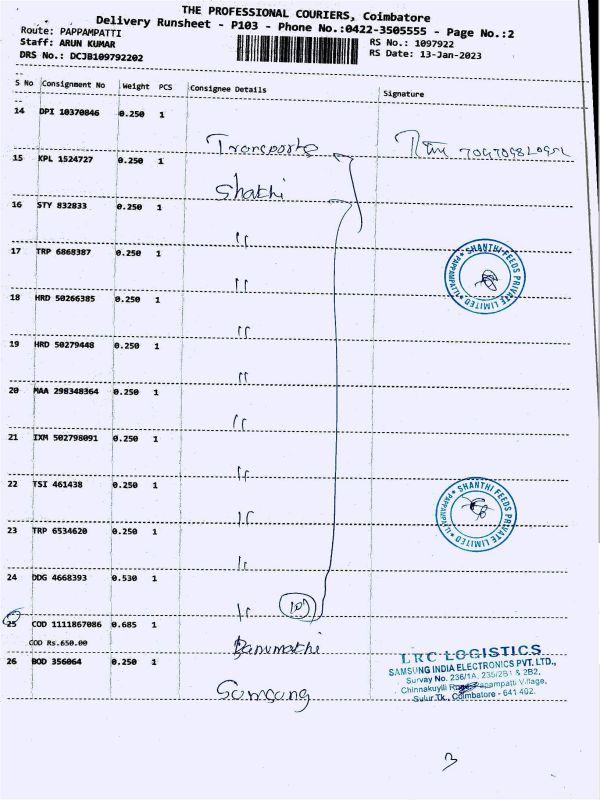 THE PROFESSIONAL COURIERS, Coimbatore
Delivery Runsheet - P103 - Phone No.:0422-3505555 - Page No.:2
Route: PAPPAMPATTI
Staff: ARUN KUMAR
DRS No.: DCJB109792202
RS No.: 1097922
RS Date: 13-Jan-2023
S No Consignment No Weight PCS Consignee Details Signature
14 DPI 10370846 0.250 1 Transports
15 KPL 1524727 0.250 1 Shakhi
16 STY 832833 0.250 1 "
17 TRP 6868387 0.250 1 "
SHANTHI FEEDS PRIVATE LIMITED
18 HRD 50266385 0.250 1 "
19 HRD 50279448 0.250 1 "
20 MAA 298348364 0.250 1 "
21 IXM 502798091 0.250 1 "
22 TSI 461438 0.250 1 "
SHANTHI FEEDS PRIVATE LIMITED
23 TRP 6534620 0.250 1 "
24 DDG 4668393 0.530 1 "
25 COD 1111867086 0.685 1 Banumathi
COD Rs.650.00
26 BOD 356064 0.250 1 Samsung
LRC LOGISTICS
SAMSUNG INDIA ELECTRONICS PVT. LTD.,
Survay No. 236/1A, 235/2B1 & 2B2,
Chinnakuyili Road, Papampatti Village,
Sulur Tk., Coimbatore - 641 402.
3